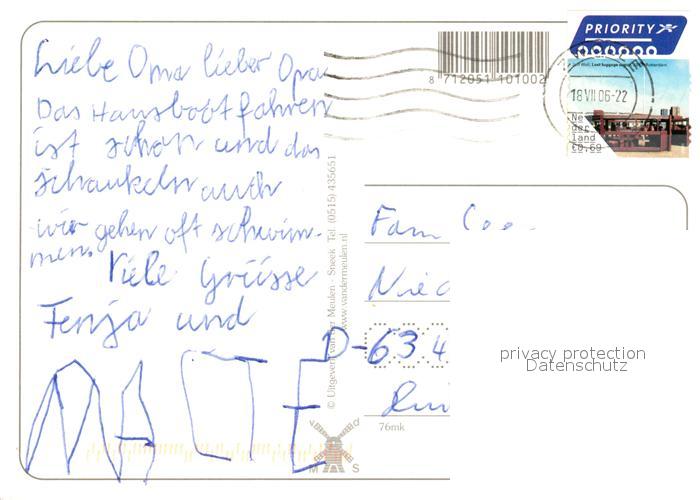 Liebe Oma lieber Opa
Das Hausboot fahren
ist schön und das
schaukeln auch
wir gehen oft schwim-
men.
Viele Grüsse
Fenja und
MALTE
PRIORITY
8 712051 101002
18 VII 06-22
Ne
der
land
€0,69
© Uitgeverij van der Meulen - Sneek Tel. (0515) 435651
www.vandermeulen.nl
Fam
D-634
privacy protection
Datenschutz
76mk
M S